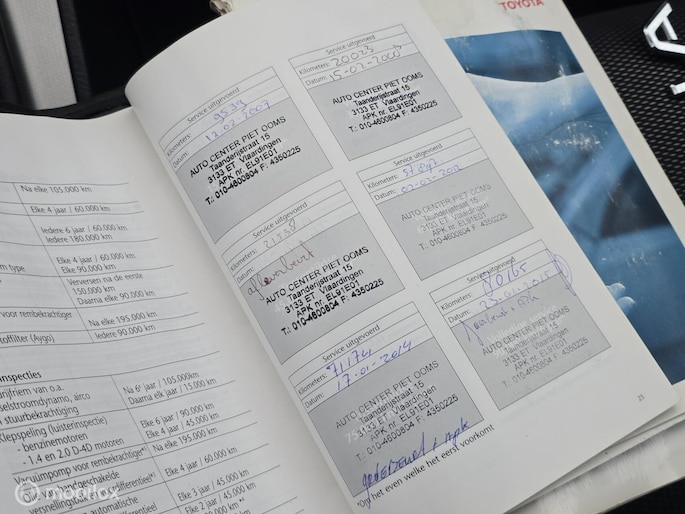 TOYOTA
Na elke 105.000 km
Elke 4 jaar / 60.000 km
Iedere 6 jaar / 60.000 km
Iedere 180.000 km
m type
Elke 4 jaar / 60.000 km
Elke 90.000 km
Verversen na de eerste
150.000 km
Daarna elke 90.000 km
voor rembekrachtiger
Na elke 195.000 km
toffilter (Aygo)
Iedere 90.000 km
inspecties
drijfriem van o.a.
selstroomdynamo, airco
stuurbekrachtiging
Na 6e jaar / 105.000km
Daarna elk jaar / 15.000 km
Klepspeling (luisterinspectie)
- benzinemotoren
- 1.4 en 2.0 D-4D motoren
Elke 6 jaar / 90.000 km
Elke 4 jaar / 45.000 km
Na elke 195.000 km
Vacuumpomp voor rembekrachtiger*¹
Elke 4 jaar / 60.000 km
handgeschakelde
Elke 3 jaar / 45.000 km
automatische
Elke 2 jaar /
Service uitgevoerd
Kilometers: 9539
Datum: 12.02.2007
AUTO CENTER PIET OOMS
Taanderijstraat 15
3133 ET Vlaardingen
APK nr. EL91E01
T.: 010-4600804 F: 4350225
Service uitgevoerd
Kilometers: 20023
Datum: 15-02-2008
AUTO CENTER PIET OOMS
Taanderijstraat 15
3133 ET Vlaardingen
APK nr. EL91E01
T.: 010-4600804 F.: 4350225
Service uitgevoerd
Kilometers:
Datum: afleverbeurt
AUTO CENTER PIET OOMS
Taanderijstraat 15
3133 ET Vlaardingen
APK nr. EL91E01
T.: 010-4600804 F: 4350225
Service uitgevoerd
Kilometers:
Datum:
AUTO CENTER PIET OOMS
Taanderijstraat 15
3133 ET Vlaardingen
APK nr. EL91E01
T.: 010-4600804 F.: 4350225
Service uitgevoerd
Kilometers: 71174
Datum: 17-01-2014
AUTO CENTER PIET OOMS
Taanderijstraat 15
3133 ET Vlaardingen
APK nr. EL91E01
T.: 010-4600804 F.: 4350225
Service uitgevoerd
Kilometers: 80165
Datum: 23-01-2015
AUTO CENTER PIET OOMS
Taanderijstraat 15
3133 ET Vlaardingen
APK nr. EL91E01
T.: 010-4600804 F.: 4350225
*Op het even welke het eerst voorkomt